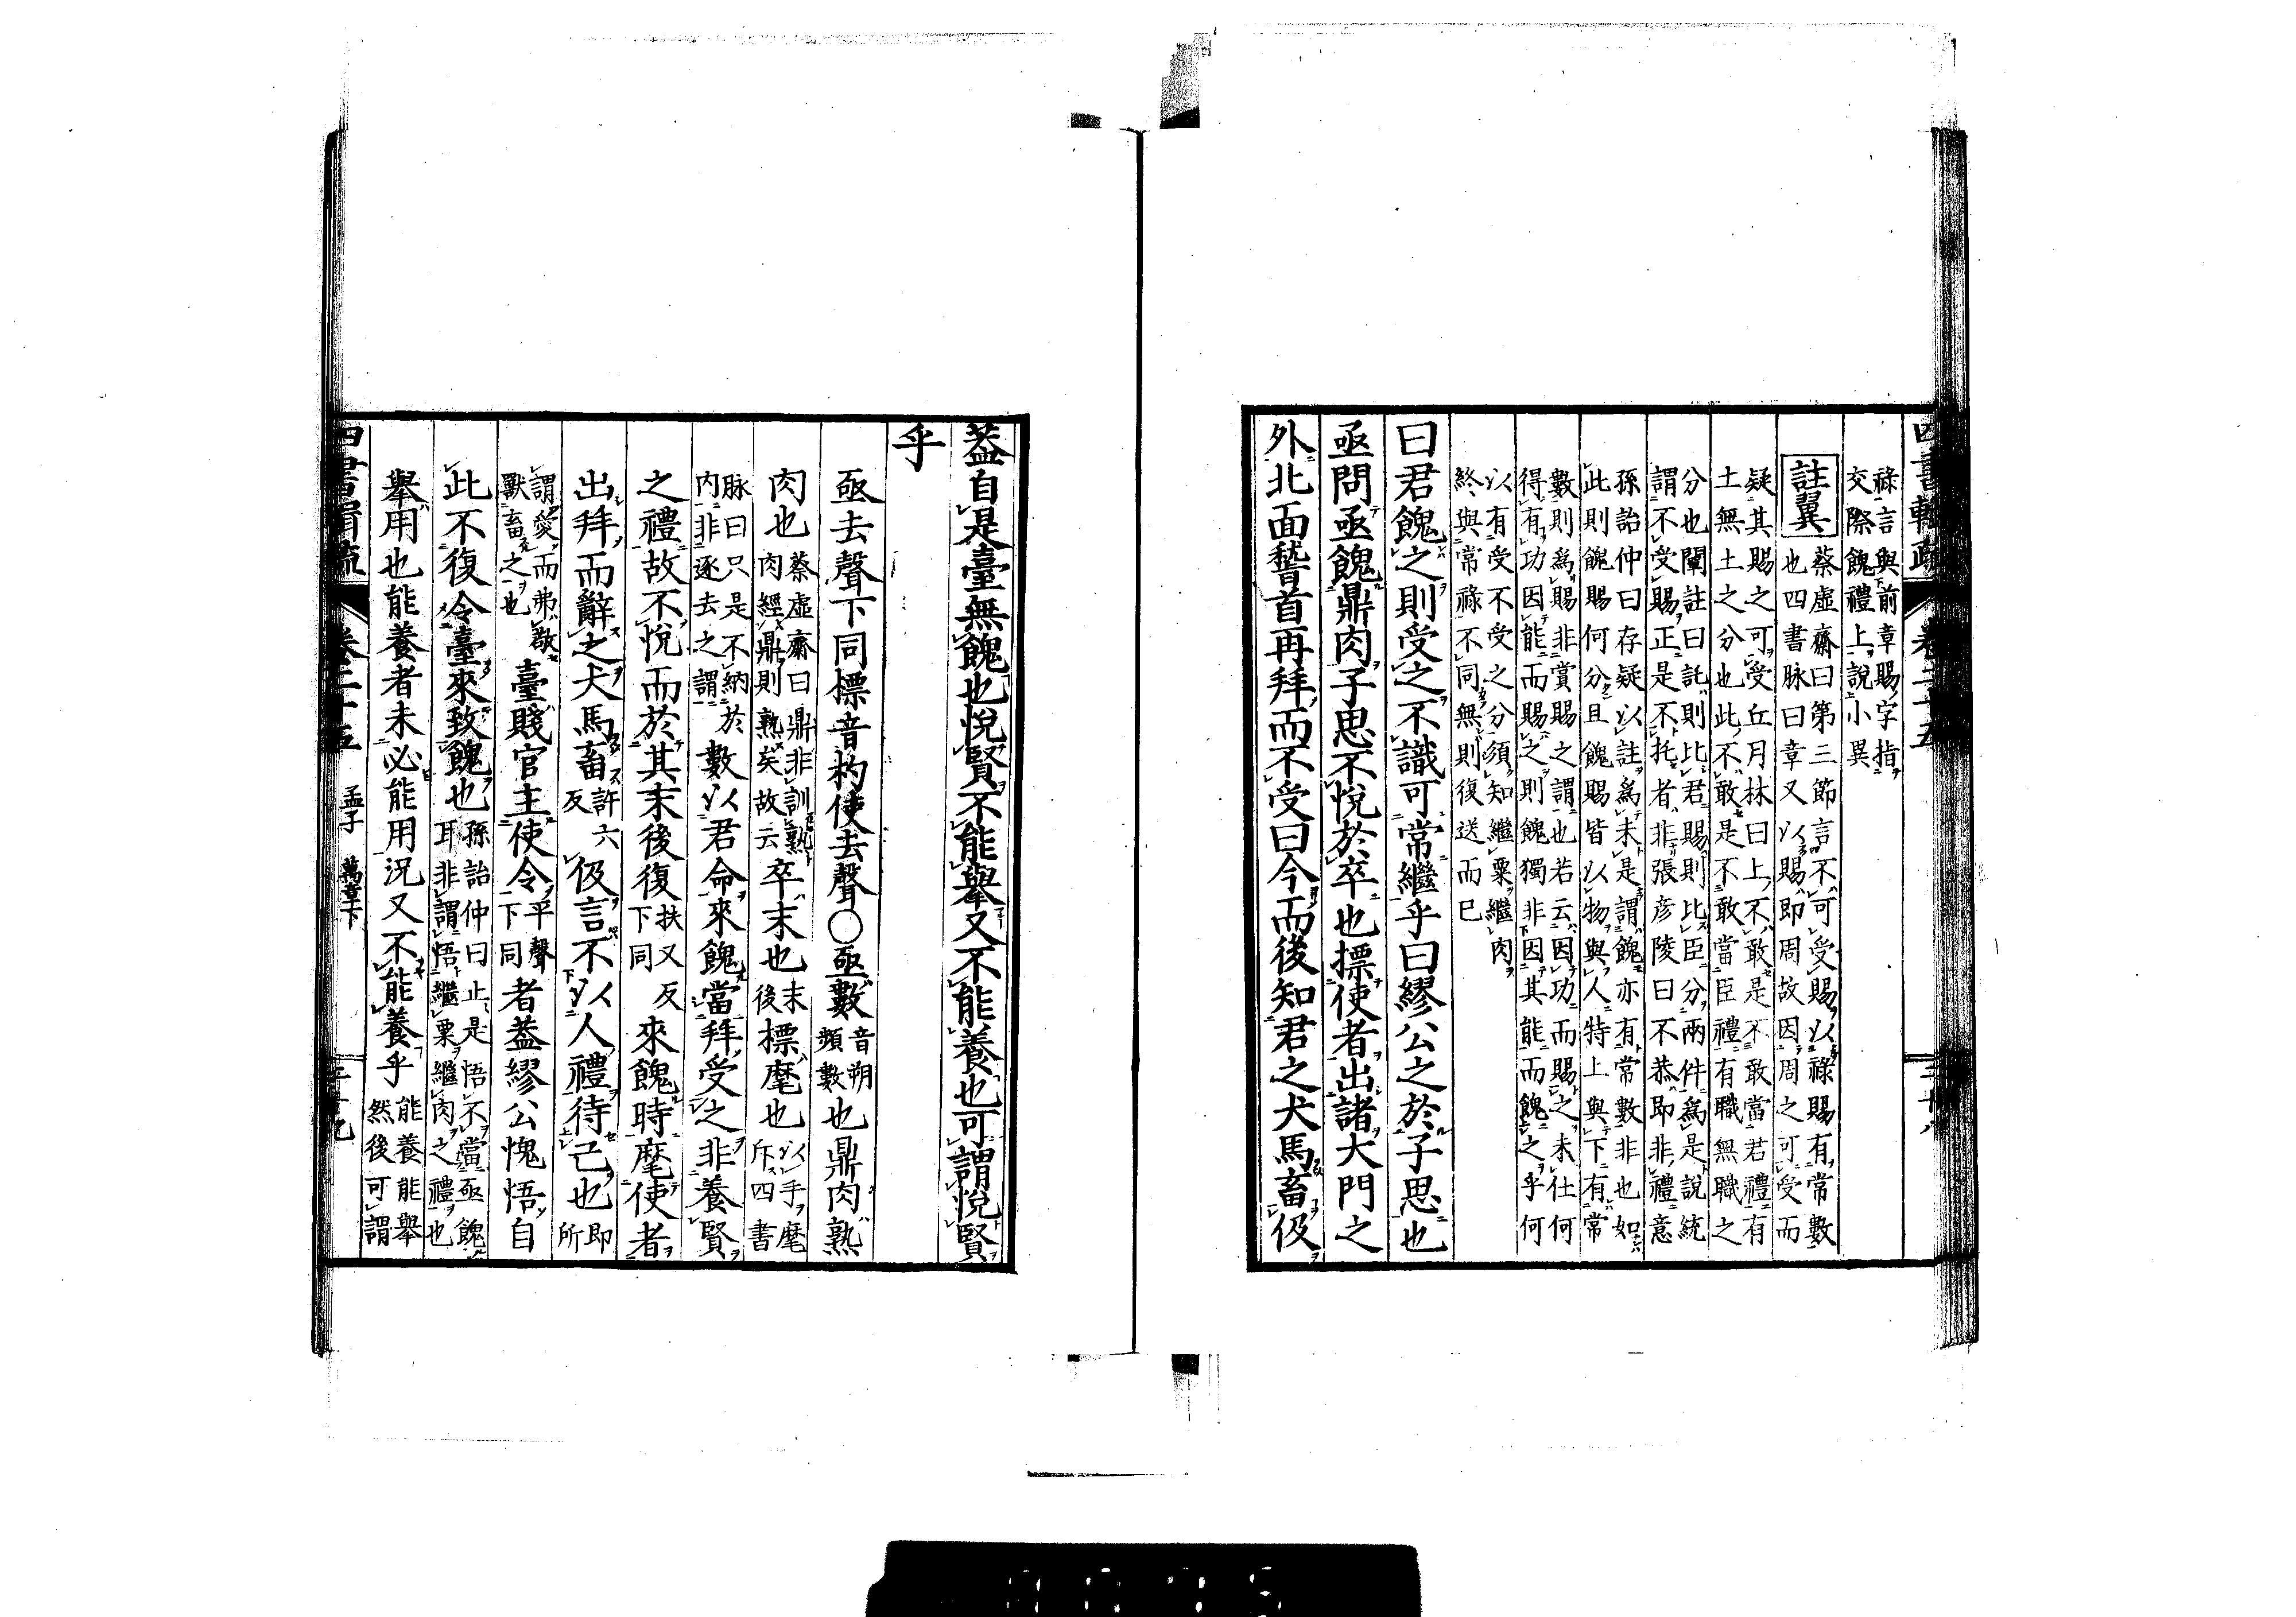 祿言與前章賜字指
交際餽禮上說小異
註翼
蔡虛齋曰第三節言不可受賜以祿賜有常數
也四書脉曰章又以賜即周故因周之可受而
疑其賜之可受丘月林曰上不敢是不敢當君禮有
土無土之分也此不敢是不敢當臣禮有職無職之
分也闡註曰託則比君賜則比臣分兩件為是說統
謂不受賜正是不托者非張彦陵曰不恭即非禮意
孫詒仲曰存疑以註為未是謂餽亦有常數非也如
此則餽賜何分且餽賜皆以物與人特上與下有常
數則為賜非賞賜之謂也若云因功而賜之未仕何
得有功因能而賜之則餽獨非因其能而餽之乎何
以有受不受之分須知繼粟繼肉
終與常祿不同無則復送而已
曰君餽之則受之不識可常繼乎曰繆公之於子思也
亟問亟餽鼎肉子思不悅於卒也摽使者出諸大門之
外北面稽首再拜而不受曰今而後知君之犬馬畜伋
蓋自是臺無餽也悅賢不能舉又不能養也可謂悅賢
乎
亟去聲下同標音杓使去聲〇亟數音朔頻數也鼎肉熟
肉也蔡虛齋曰鼎非訓熟肉經鼎則熟矣故云卒末也末後標麾也以手麾斥四書
脉曰只是不納於内非逐去之謂數以君命來餽當拜受之非養賢
之禮故不悅而於其末後復扶又反下同來餽時麾使者
出拜而辭之犬馬畜許六反伋言不以人禮待己也即所
謂愛而弗敬獸畜之也臺賤官主使令平聲下同者蓋繆公愧悟自
此不復令臺來致餽也孫詒仲曰止是悟不當亟餽耳非謂悟繼粟繼肉之禮也
舉用也能養者未必能用況又不能養乎能養能舉然後可謂
孟子 萬章下